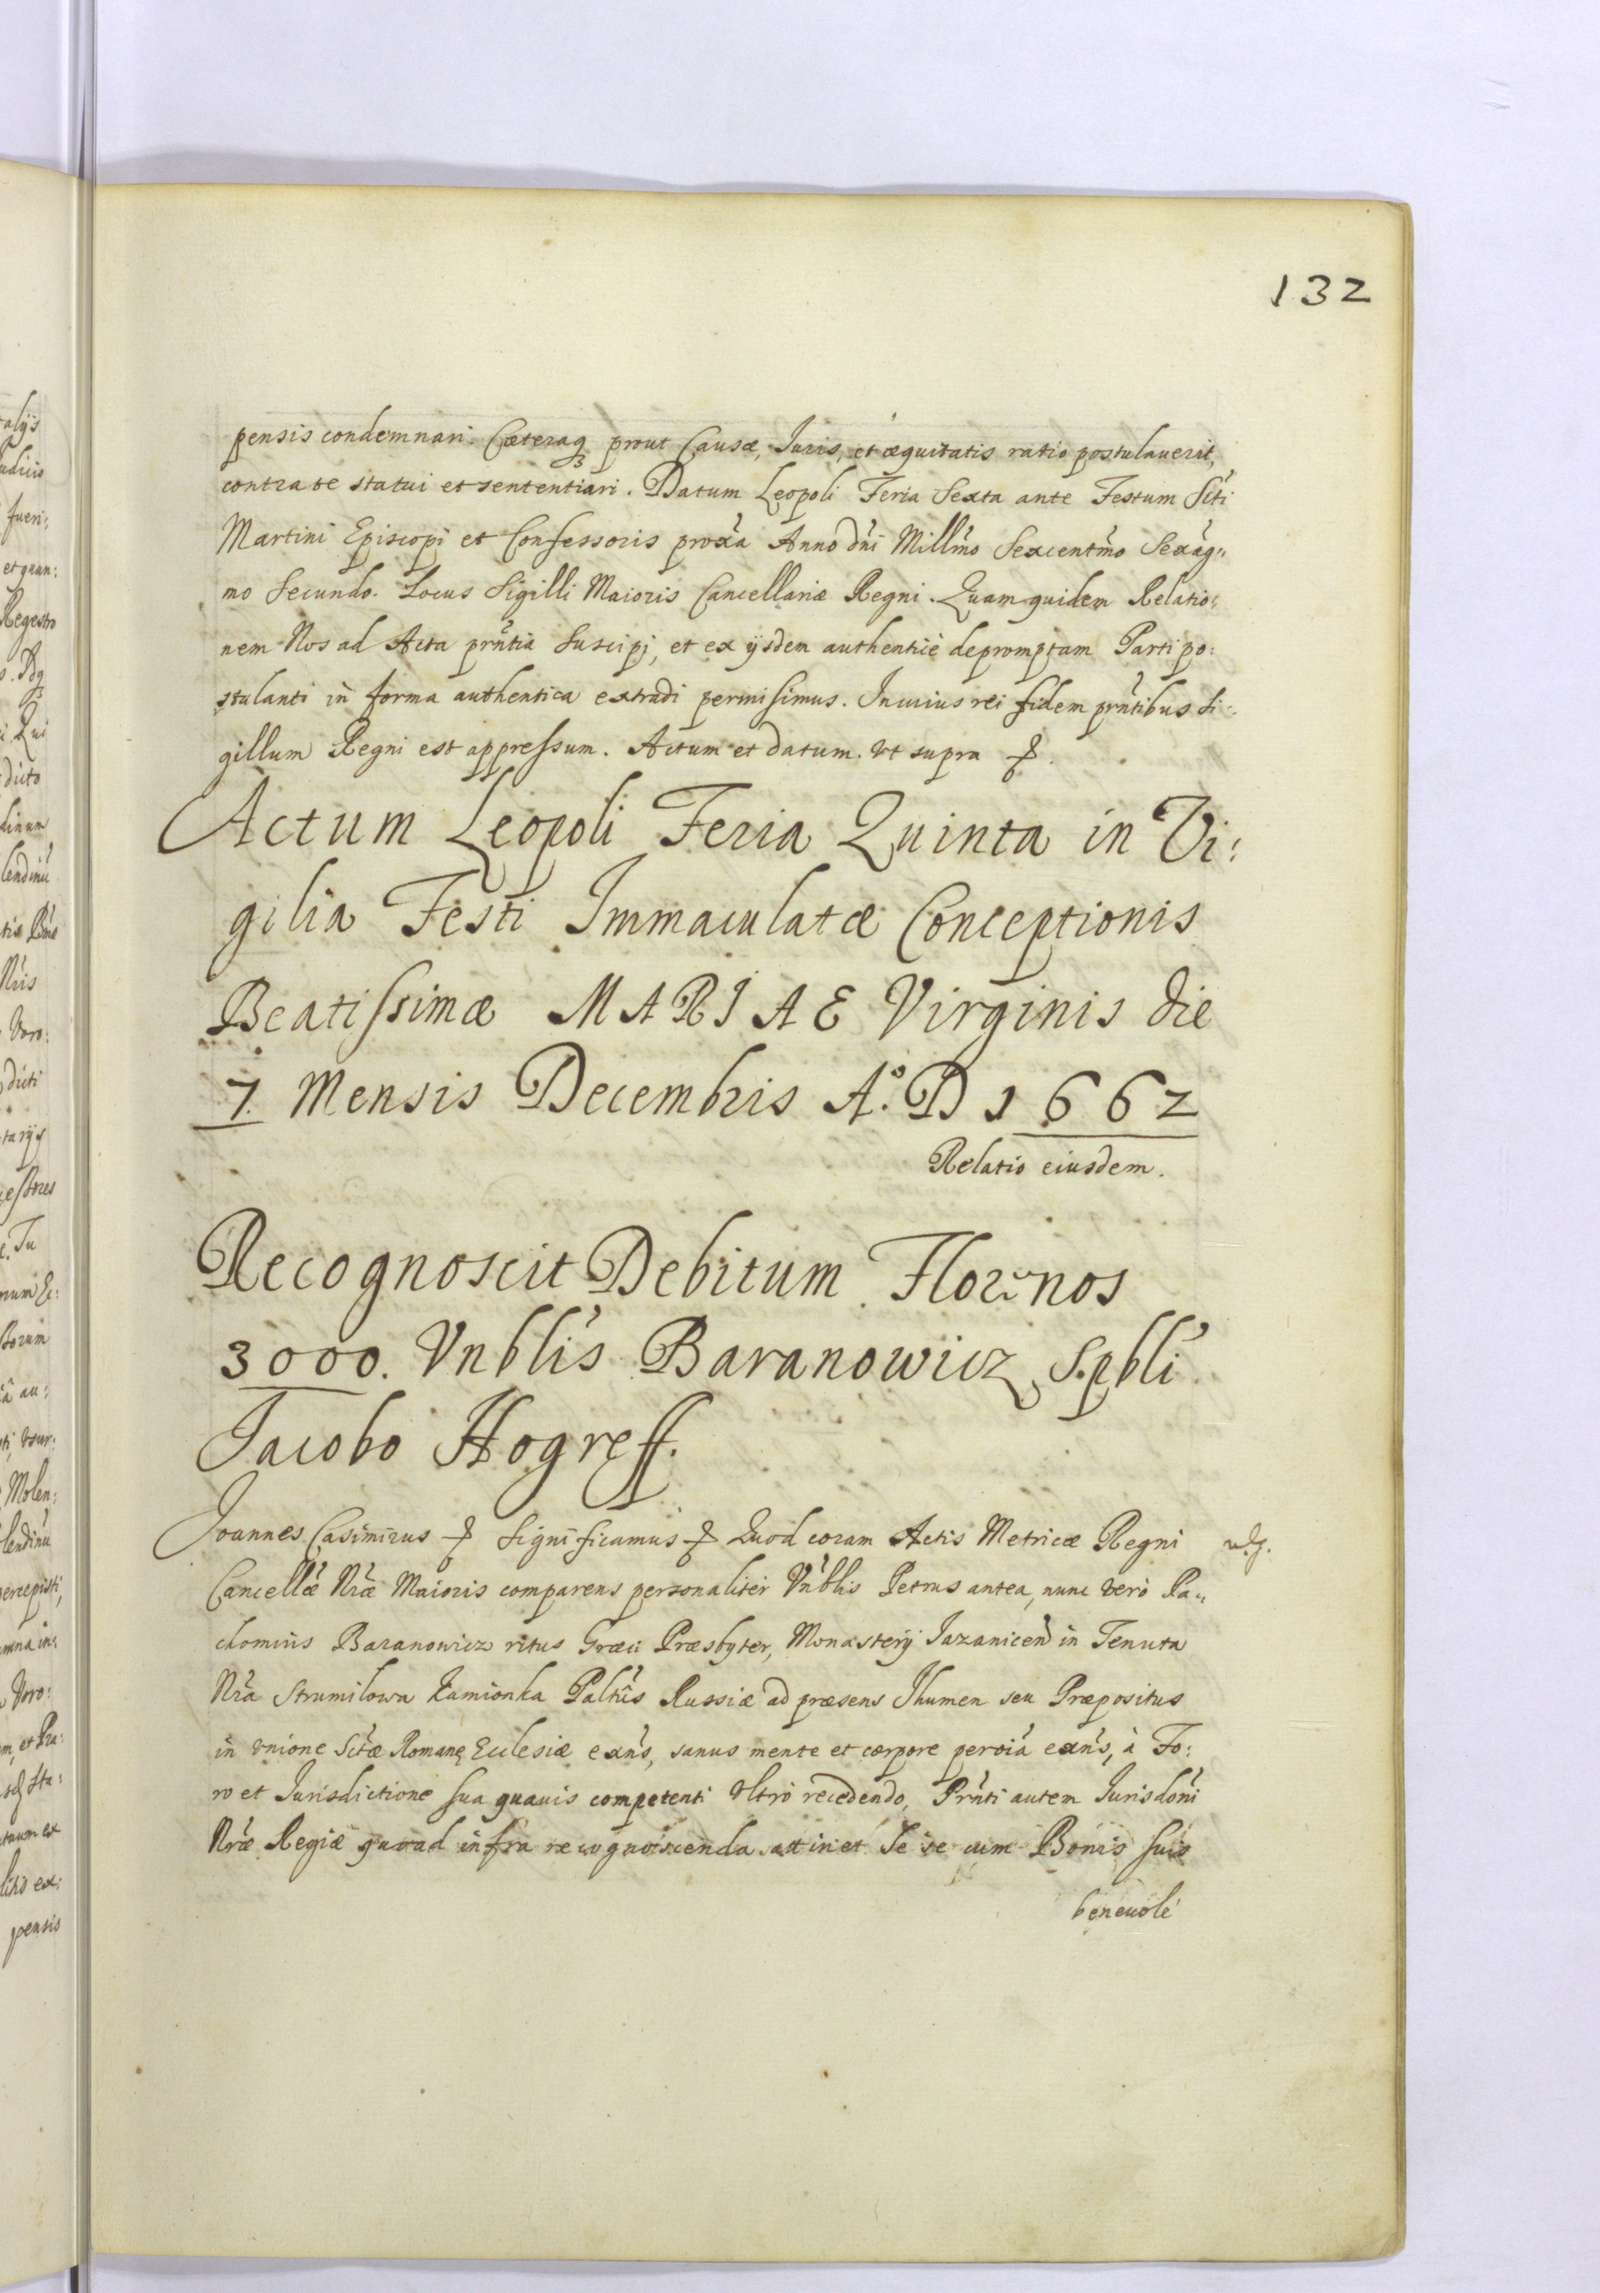 132
pensis condemnari. Cæteraq3 prout Causæ, Iuris, et æquitatis ratio postulauerit,
contra te statui et sententiari. Datum Leopoli Feria Sexta ante Festum Scti
Martini Episcopi et Confessoris proxa Anno dni Millmo Sexcentmo Sexag„
mo Secundo. Locus Sigilli Maioris Cancellariæ Regni. Quam quidem Relatio:
nem Nos ad Acta prntia Suscipi, et ex ijsdem authenticè depromptam Parti po:
stulanti in forma authentica extradi permisimus. In cuius rei fidem prntibus Si:
gillum Regni est appressum. Actum et datum. vt supra
Actum Leopoli Feria Quinta in Vi:
gilia Festi Immaculatæ Conceptionis
Beatissimæ MARIAE Virginis die
7. Mensis Decembris A.º D 1662
Relatio eiusdem.
Recognoscit Debitum Florenos
3000. Vnblis Baranowicz S.pbli
Jacobo Hogreff.
Joannes Casimirus Significamus Quod coram Actis Metricæ Regni
Cancellæ Nræ Maioris comparens personaliter Vnblis Petrus antea, nunc verò Pa„
chomius Baranowicz ritus Græci Præsbyter, Monasterij Jazanicen in Tenuta
Nra Strumilowa Kamionka Paltus Russiæ ad præsens Ihumen seu Præpositus
in vnione Sctæ Romanę Ecclesiæ exns, sanus mente et corpore per oia exns, à Fo:
ro et Jurisdictione sua quauis competenti vltrò recedendo, Prnti autem Jurisdoni
Nræ Regiæ quoad infra recognoscenda attinet Se se cum Bonis suis
beneuolè